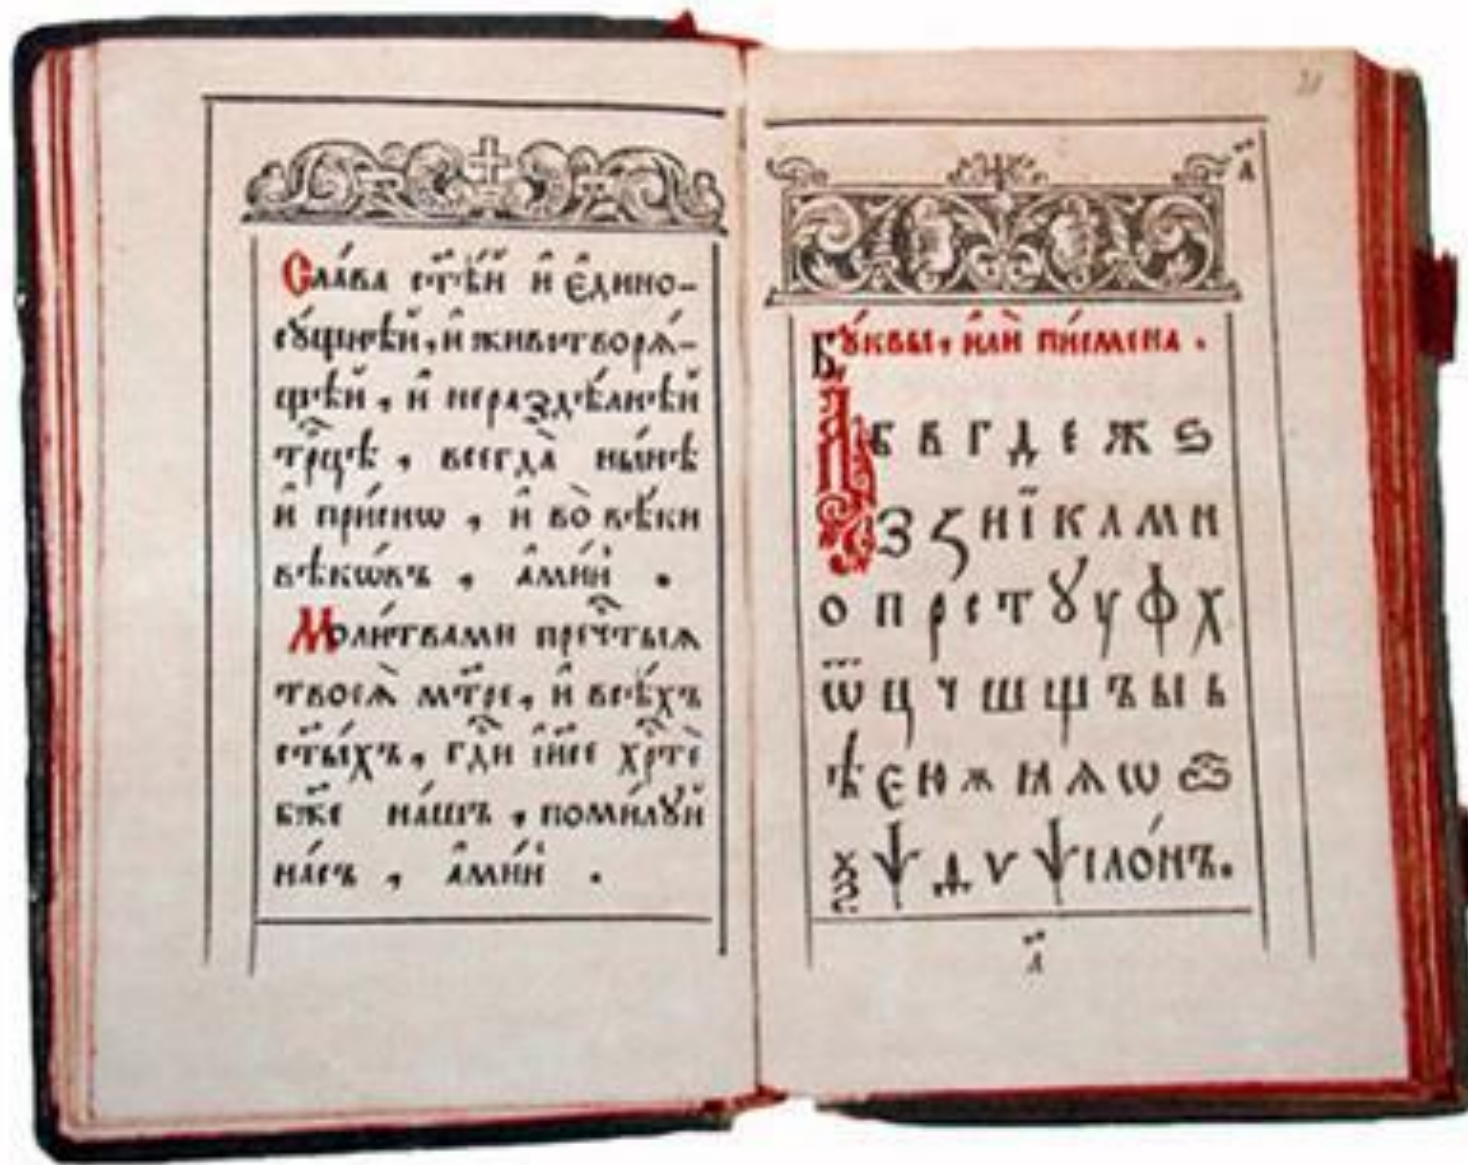 Сла́ва ст҃ѣ́й и҆ є҆дино-
сꙋ́щнѣй, и҆ живѡтворѧ́-
щѣй, и҆ нераздѣ́лнѣй
трⷪ҇цѣ, всегда̀ ны́нѣ
и҆ при́снѡ, и҆ во̀ вѣ́ки
вѣкѡ́въ, а҆ми́нь.
Моли́твами пречⷭ҇тыѧ
твоеѧ̀ мт҃ре, и҆ всѣ́хъ
ст҃ы́хъ, гдⷭ҇и і҆и҃се хрⷭ҇тѐ
бж҃е на́шъ, поми́лꙋй
на́съ, а҆ми́нь.
а҃
Бꙋ́квы, и҆лѝ пи́смена.
А б в г д е ж ѕ
з ꙁ и ї к л м н
о п р с т ꙋ у ф х
ѿ ц ч ш щ ъ ы ь
ѣ є ю ѫ ꙗ ѧ ѡ ѽ
ѯ ѱ д ѵ ѱіло́нъ.
а҃